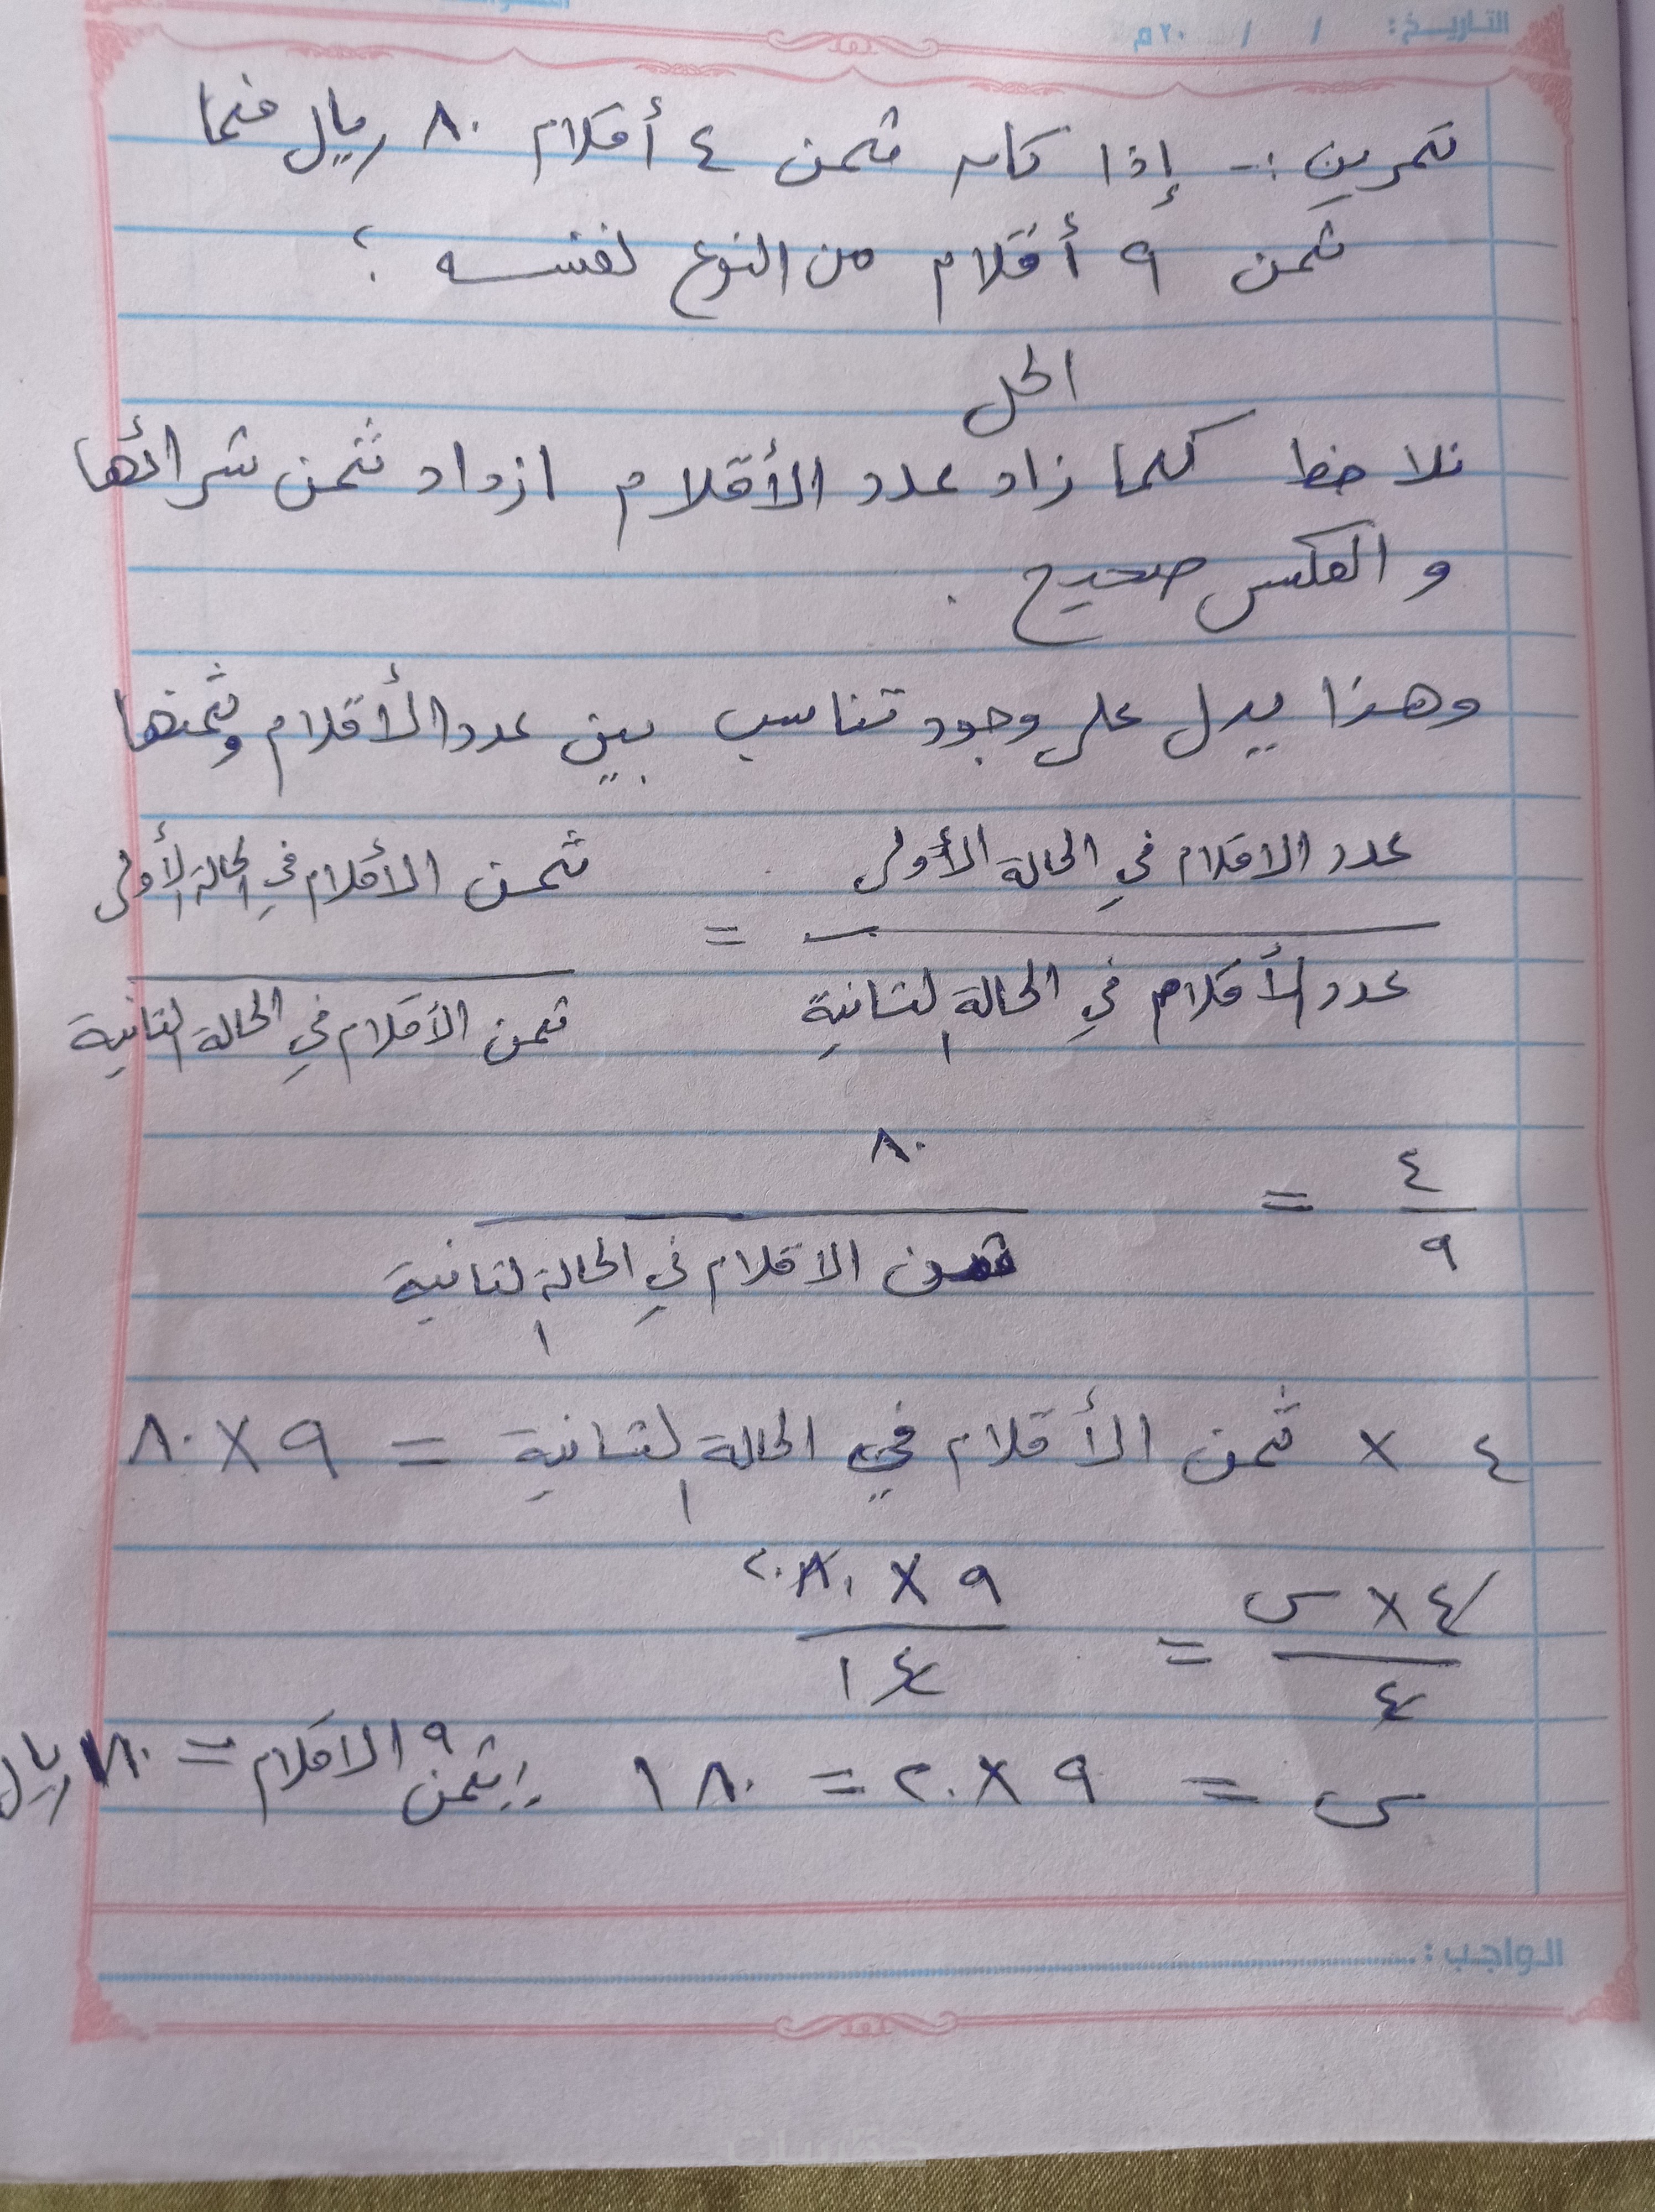 التاريخ: / / ٢٠م
تمرين :- إذا كان ثمن ٤ أقلام ٨٠ ريال فما
ثمن ٩ أقلام من النوع نفسه ؟
الحل
نلاحظ كلما زاد عدد الأقلام ازداد ثمن شرائها
و العكس صحيح .
وهذا يدل على وجود تناسب بين عدد الأقلام وثمنها
عدد الاقلام في الحالة الأولى / عدد الأقلام في الحالة الثانية = ثمن الأقلام في الحالة الأولى / ثمن الأقلام في الحالة الثانية
٤ / ٩ = ٨٠ / ثمن الاقلام في الحالة الثانية
٤ × ثمن الأقلام في الحالة الثانية = ٩ × ٨٠
٤ × س / ٤ = ٩ × ٨٠ ٢٠ / ٤ ١
س = ٩ × ٢٠ = ١٨٠ ∴ ثمن ٩ الاقلام = ١٨٠ ريال
الواجب :